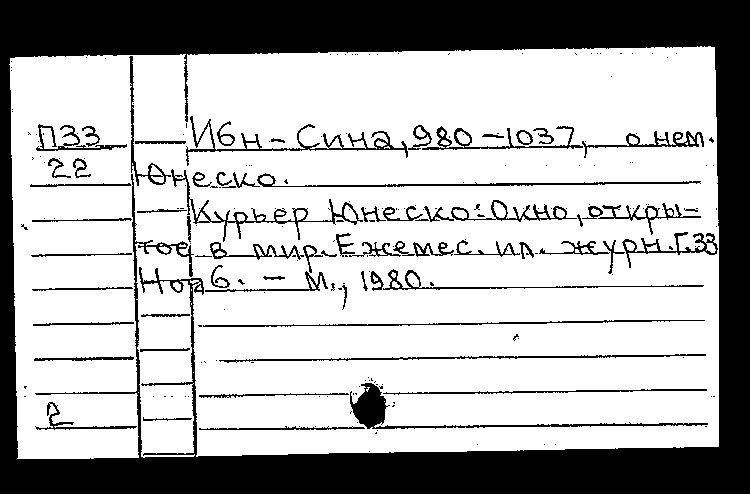 П33 Ибн-Сина, 980-1037, о нем.
22 Юнеско.
Курьер Юнеско: Окно, откры-
тое в мир. Ежемес. ил. журн. Г.33
Нояб. - М., 1980.
2